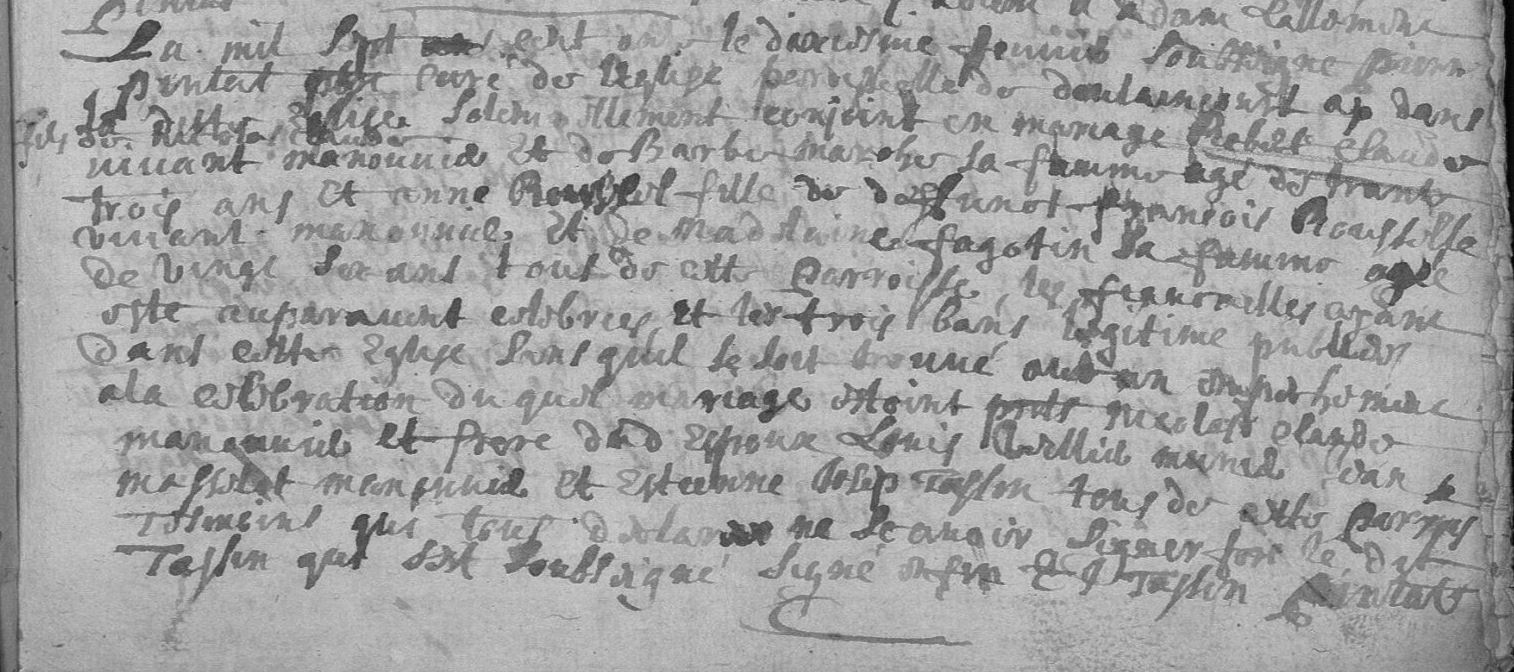 dam Lallemen
La mil sept cent onze le dixiesme feuvie soubsigne pierre
pintat pbre curé de leglise perrochelle de doulaincourt ap dans
la ditte Eglise solemnellement conjoint en mariage Robert Claude
fils de Nicolas Claude
vivant manouvrie et de Barbe marche sa famme agé de trante
trois ans et anne Roussel fille de deffunct francois Rousselle
vivant manouvrie et de Madelaine fagotin sa famme agée
de vingt six ans tous de cette parroisse, les fiancailles ayant
esté auparavent celebrees et les trois bans legitime publies
dans cette Eglise sans quil se soit trouvé aucun enpechemene
a la celebration du quel mariage estoint pnts Nicolas Claude
manouvrie et frere dud Espoux Louis
massolat manouvrie et Estienne Tassin tous de cette parroiss
Tesmoins qui tous declare ne scavoir signer fors le dit
Tassin qui sest soubsigné signé enfin E J Tassin pintat